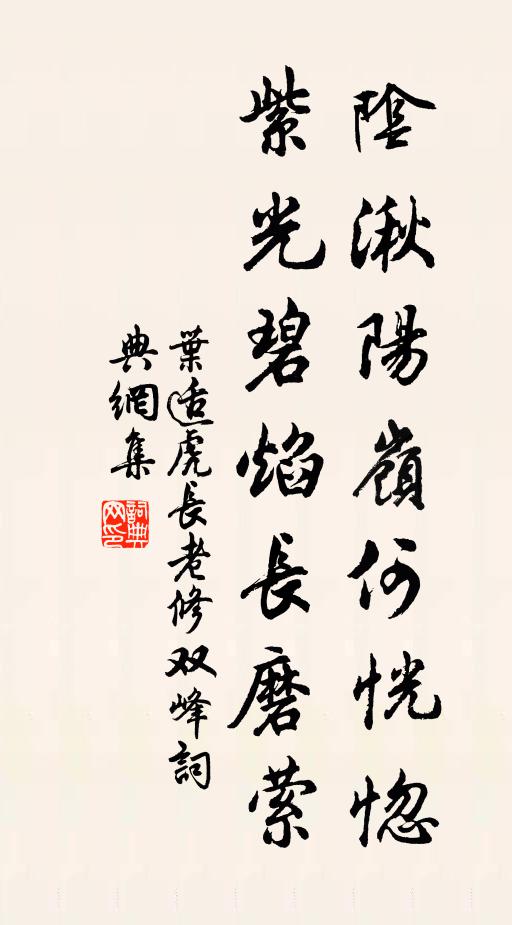 陰湫陽嶺何恍惚
紫光碧焰長磨縈
葉适虎長老修双峰詞
典網集
詞典网印